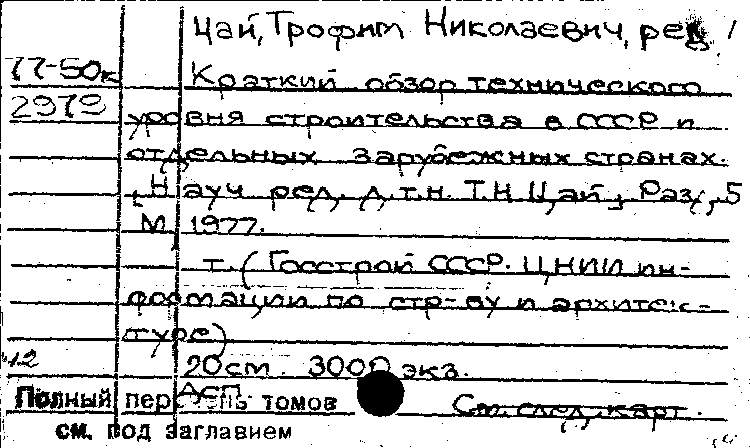 Цай, Трофим Николаевич, ред.
77-50к Краткий обзор технического
2979 уровня строительства в СССР и
отдельных зарубежных странах.
[Науч. ред. д.т.н. Т.Н. Цай]. Разд. 5
М, 1977.
т. (Госстрой СССР. ЦНИИ ин-
формации по стр-ву и архитек-
туре)
20 см. 3000 экз.
Полный перечень томов См. след. карт.
см. под заглавием